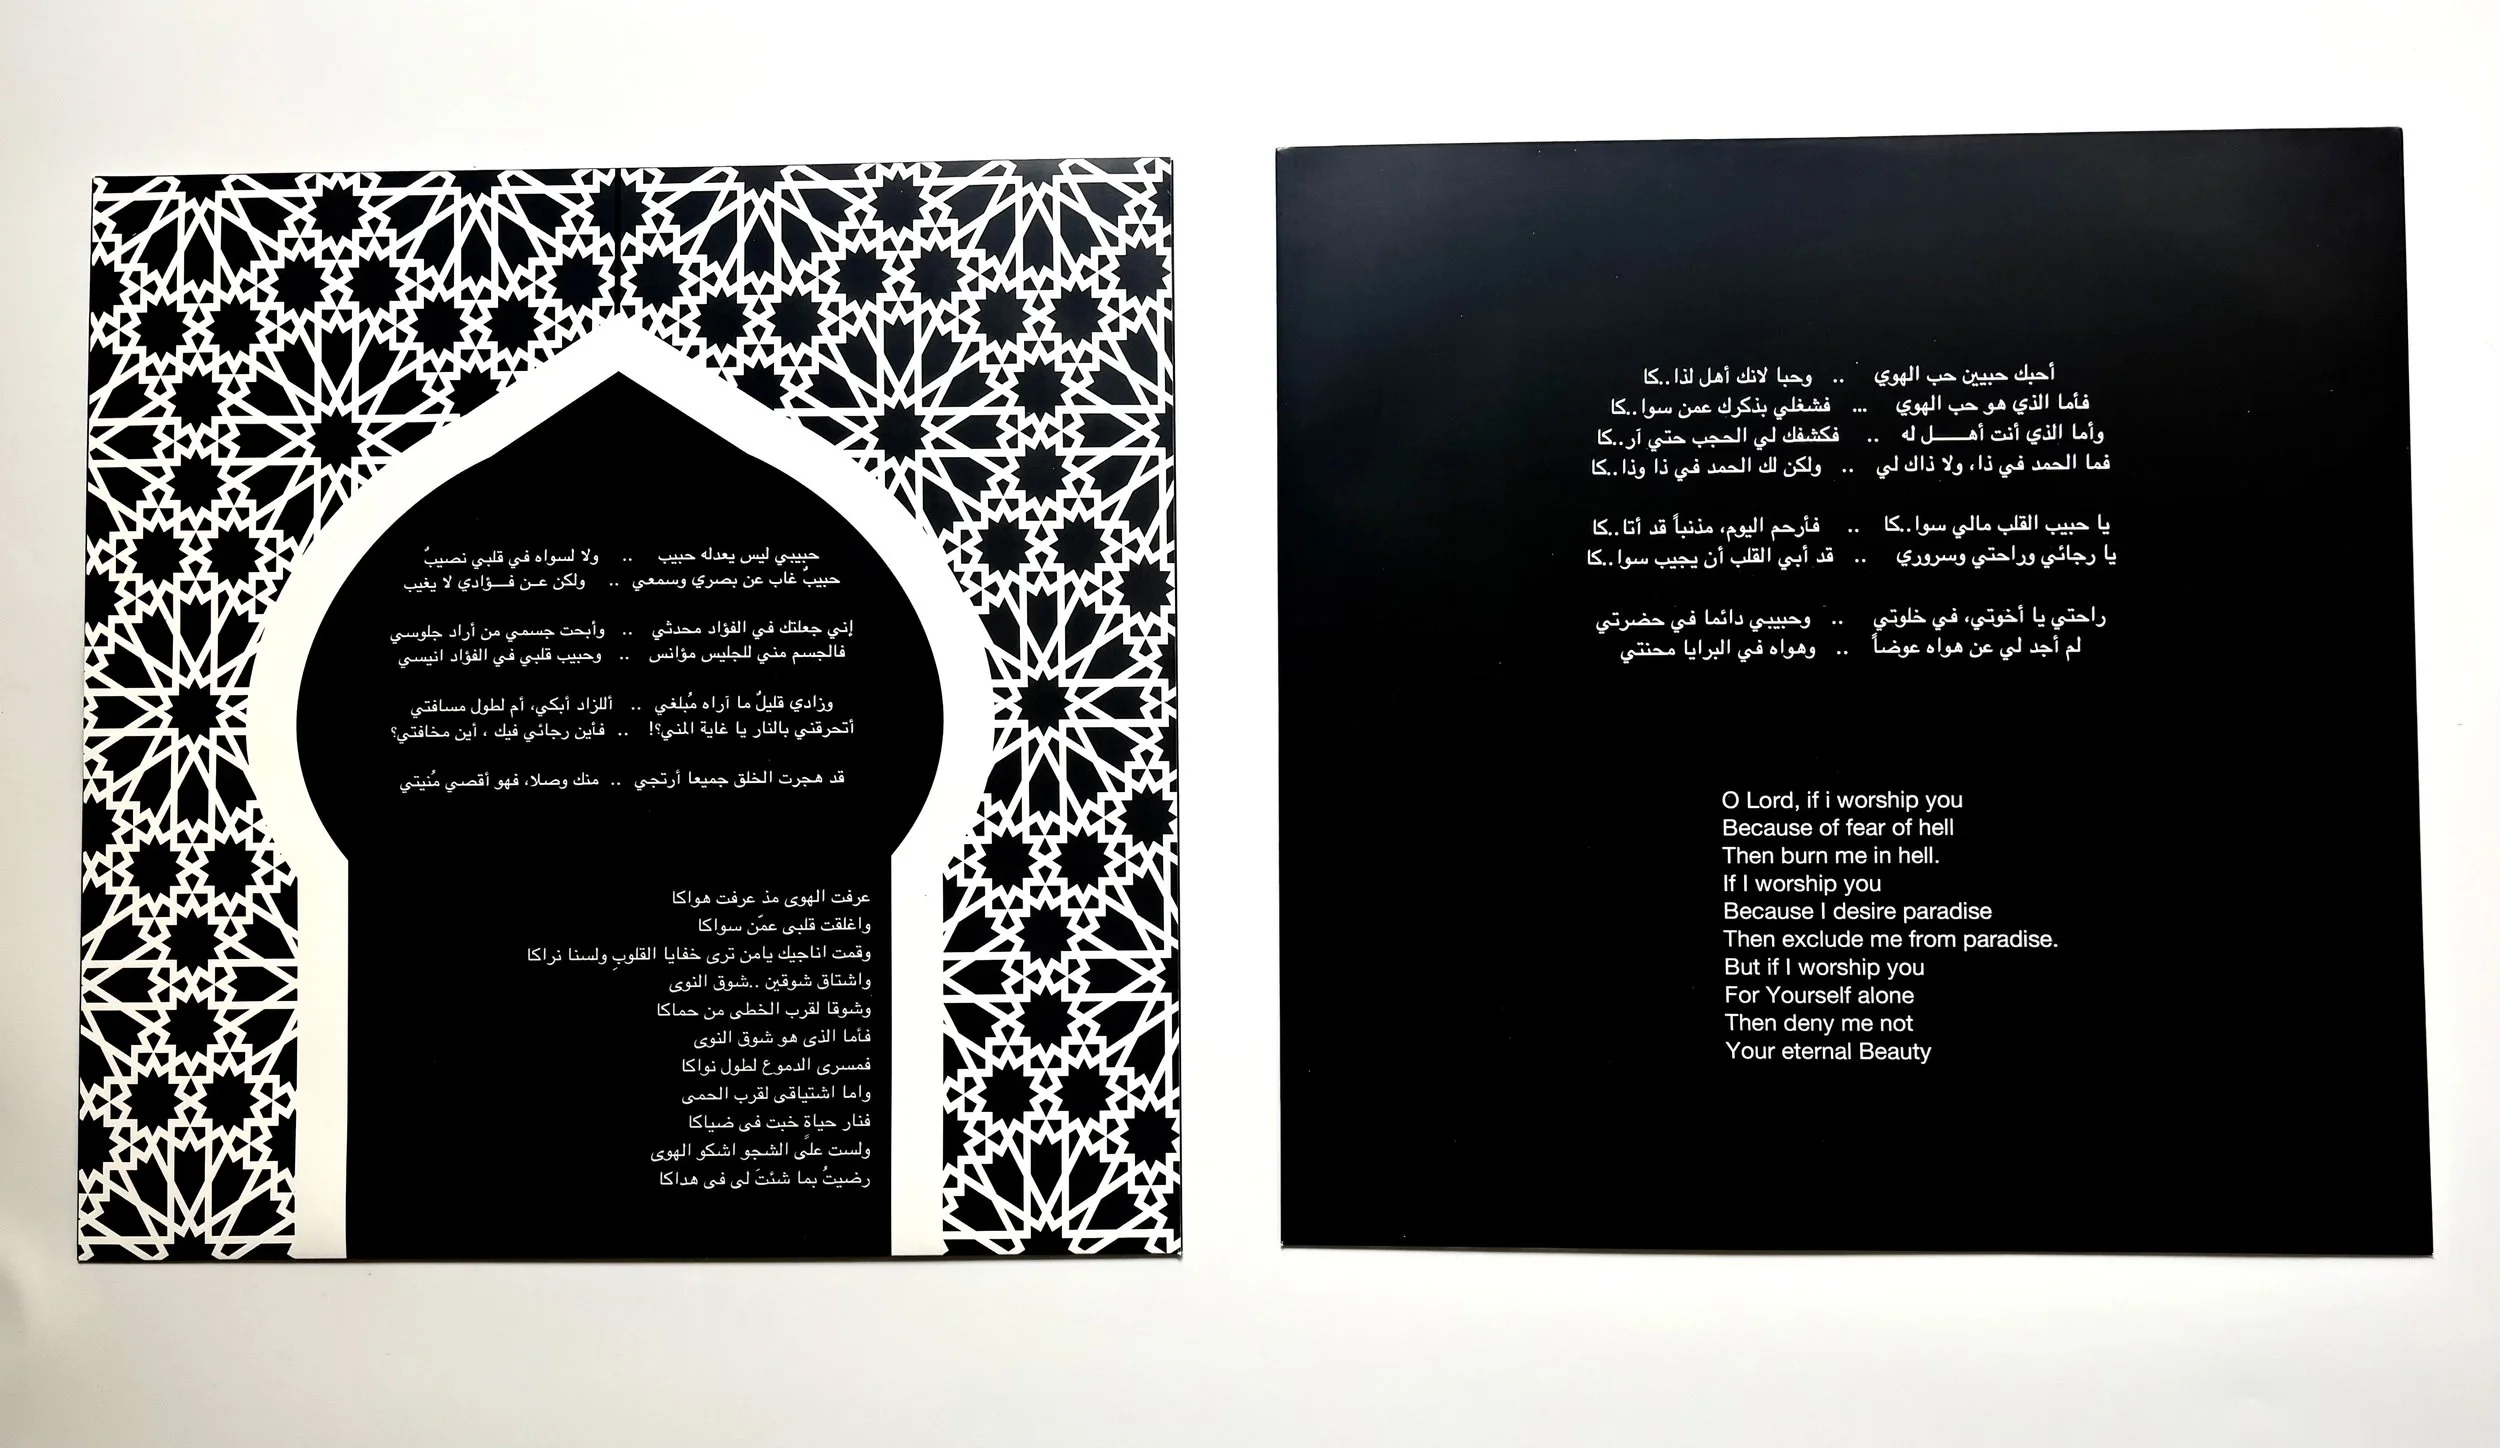 حبيبي ليس يعدله حبيب .. ولا لسواه في قلبي نصيبٌ
حبيبٌ غاب عن بصري وسمعي .. ولكن عـن فـــؤادي لا يغيب
إني جعلتك في الفؤاد محدثي .. وأبحت جسمي من أراد جلوسي
فالجسم مني للجليس مؤانس .. وحبيب قلبي في الفؤاد انيسي
وزادي قليلٌ ما آراه مُبلغي .. أللزاد أبكي، أم لطول مسافتي
أتحرقني بالنار يا غاية المني؟! .. فأين رجائي فيك ، أين مخافتي؟
قد هجرت الخلق جميعا أرتجي .. منك وصلا، فهو أقصي مُنيتي
عرفت الهوى مذ عرفت هواكا
واغلقت قلبى عمّن سواكا
وقمت اناجيك يامن ترى خفايا القلوبِ ولسنا نراكا
واشتاق شوقين ..شوق النوى
وشوقا لقرب الخطى من حماكا
فأما الذى هو شوق النوى
فمسرى الدموع لطول نواكا
واما اشتياقى لقرب الحمى
فنار حياة خبت فى ضياكا
ولست علىً الشجو اشكو الهوى
رضيتُ بما شئتَ لى فى هداكا
أحبك حبيين حب الهوي .. وحبا لانك أهل لذا..كا
فأما الذي هو حب الهوي ... فشغلي بذكرك عمن سوا..كا
وأما الذي أنت أهـــــل له .. فكشفك لي الحجب حتي آر..كا
فما الحمد في ذا، ولا ذاك لي .. ولكن لك الحمد في ذا وذا..كا
يا حبيب القلب مالي سوا..كا .. فأرحم اليوم، مذنباً قد أتا..كا
يا رجائي وراحتي وسروري .. قد أبي القلب أن يجيب سوا..كا
راحتي يا أخوتي، في خلوتي .. وحبيبي دائما في حضرتي
لم أجد لي عن هواه عوضاً .. وهواه في البرايا محنتي
O Lord, if i worship you
Because of fear of hell
Then burn me in hell.
If I worship you
Because I desire paradise
Then exclude me from paradise.
But if I worship you
For Yourself alone
Then deny me not
Your eternal Beauty